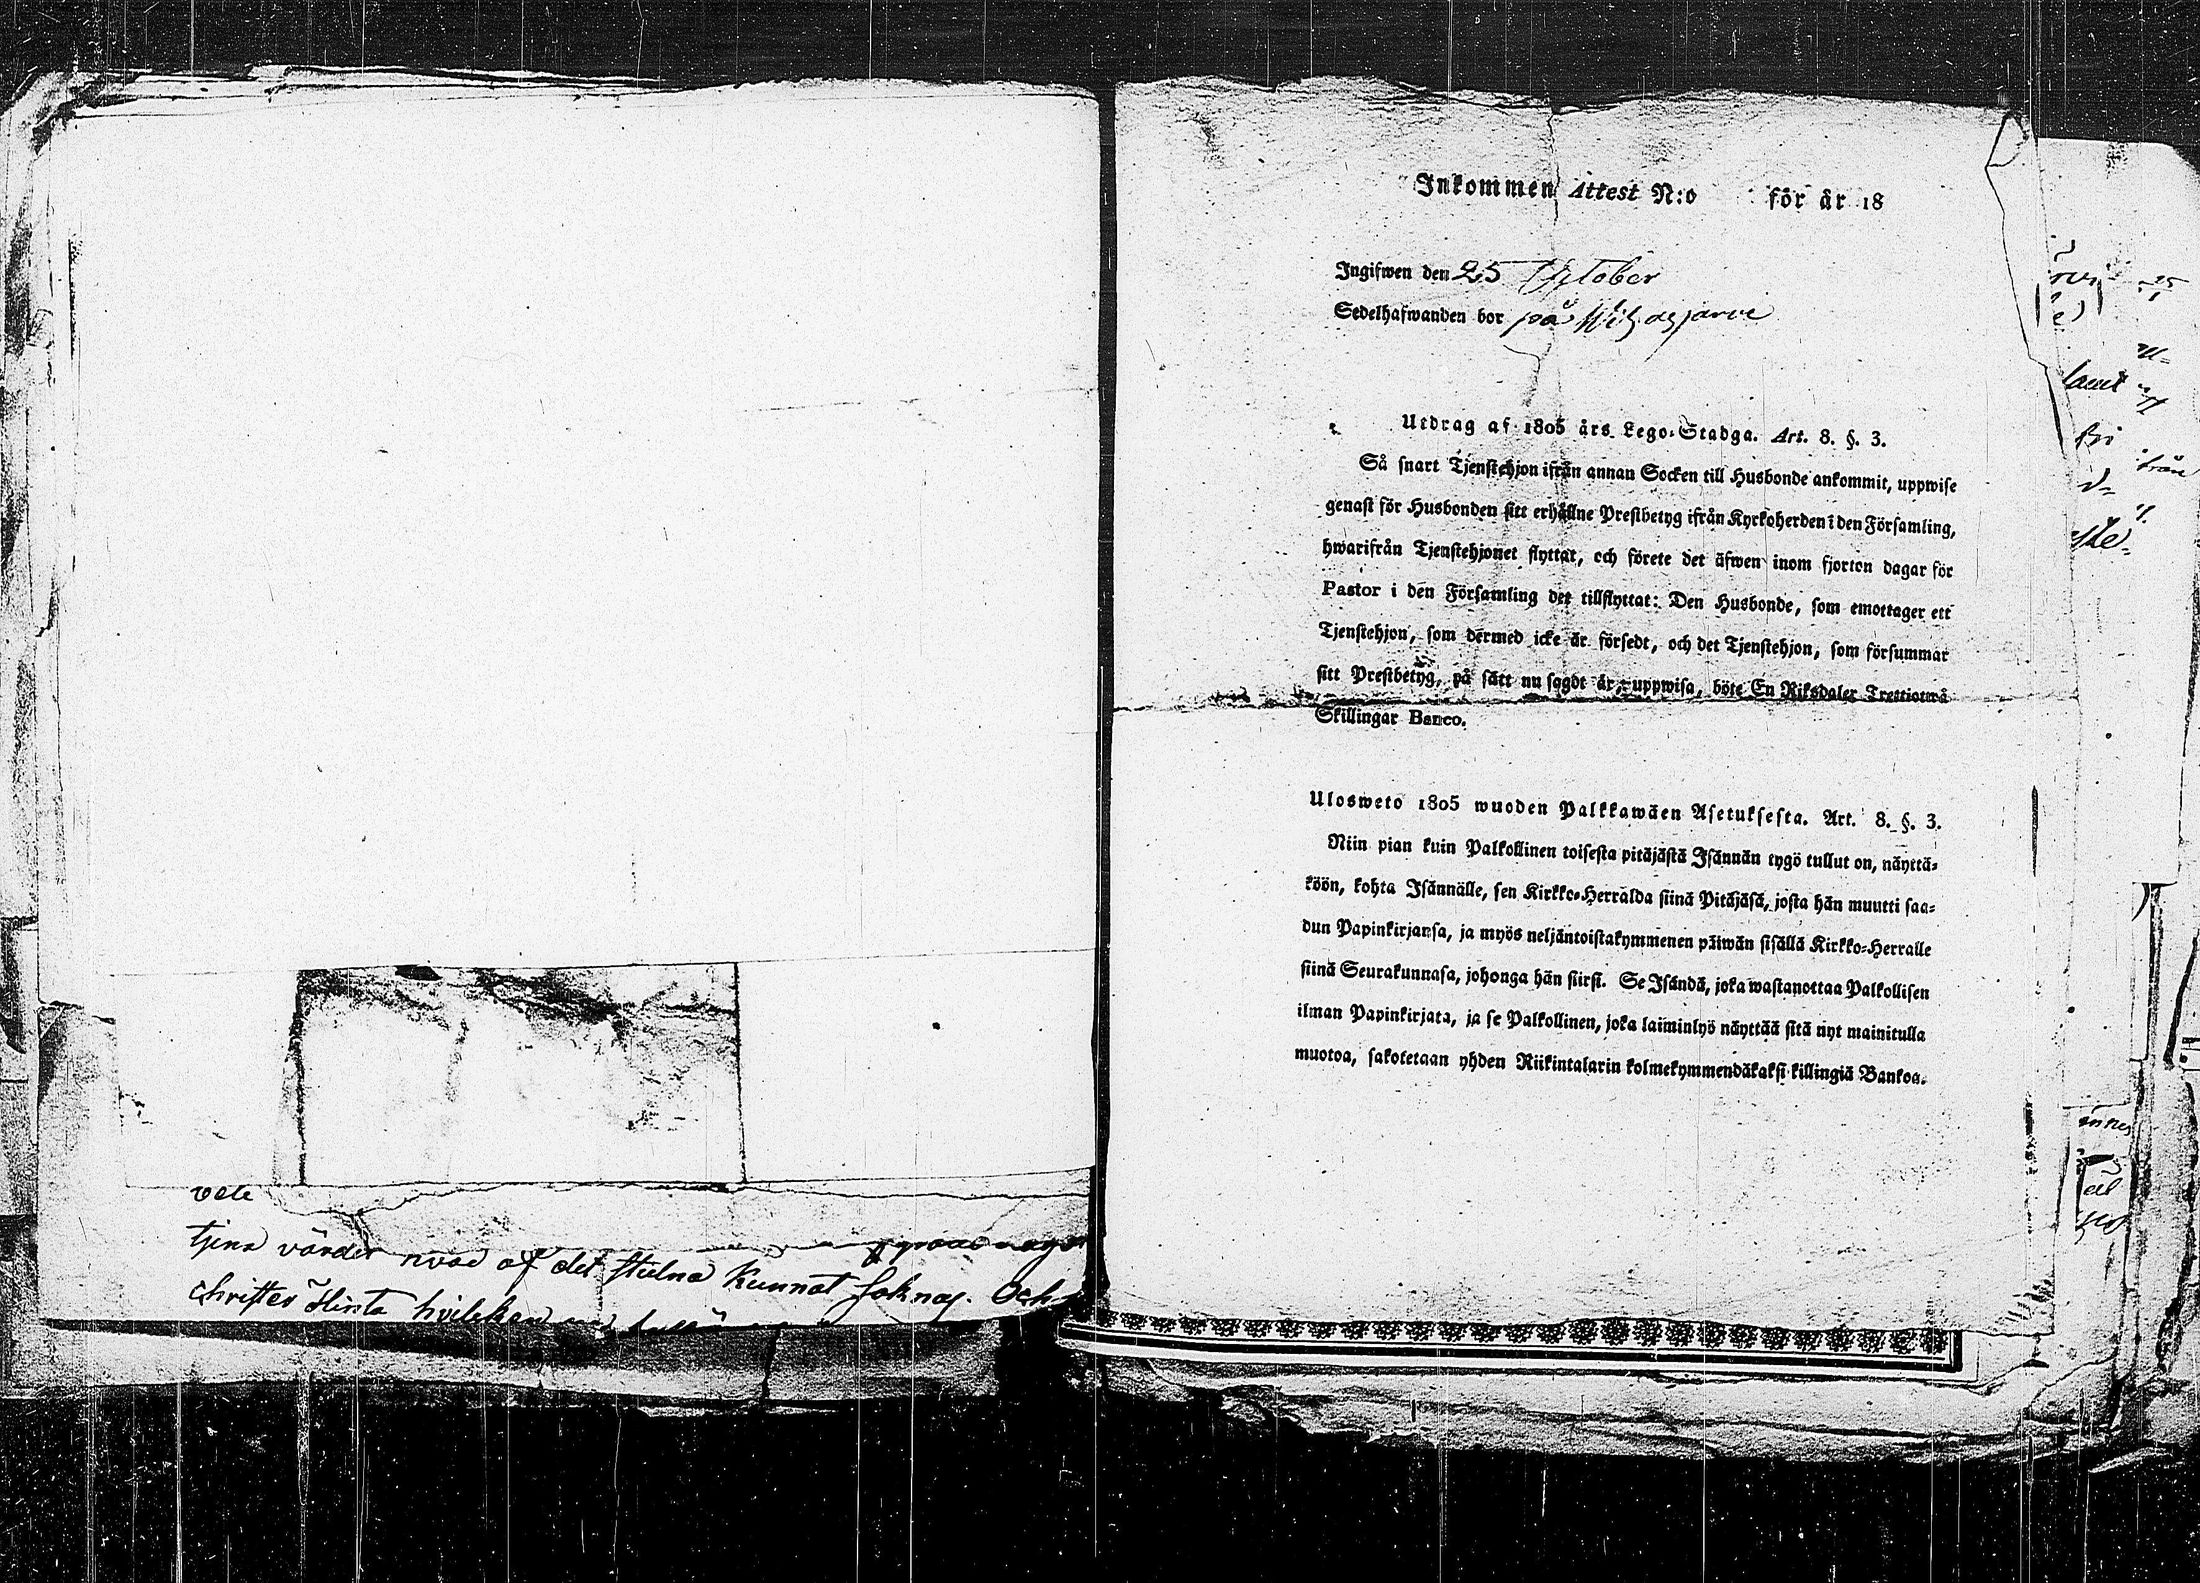 tjena värder hvad af det stulna kunnat saknas. Och
Inkommen Attest N:o för år 18
Ingifwen den 25 October
Sedelhafwanden bor på
Utdrag af 1805 års Lego-Stadga. Art. 8. §. 3.
Så snart Tjenstehjon ifrån annan Socken till Husbonde ankommit, uppwise
genast för Husbonden sitt erhållne Prestbetyg ifrån Kyrkoherden i den Församling,
hwarifrån Tjenstehjonet flyttat, och förete det äfwen inom fjorton dagar för
Pastor i den Församling det tillflyttat: Den Husbonde, som emottager ett
Tjenstehjon, som dermed icke är försedt, och det Tjenstehjon, som försummar
sitt Prestbetyg, på sätt nu sagdt är, uppwisa, böte En Riksdaler Trettiotwå
Skillingar Banco.
Ulosweto 1805 wuoden Palkkawäen Asetuksesta. Art. 8. §. 3.
Niin pian kuin Palkollinen toisesta pitäjästä Isännän tygö tullut on, näyttä-
köön, kohta Isännälle, sen Kirkko-Herralda siinä Pitäjäsä, josta hän muutti saa-
dun Papinkirjansa, ja myös neljäntoistakymmenen päiwän sisällä Kirkko-Herralle
siinä Seurakunnasa, johonga hän siirsi. Se Isändä, joka wastanottaa Palkollisen
ilman Papinkirjata, ja se Palkollinen, joka laiminlyö näyttää sitä nyt mainitulla
muotoa, sakotetaan yhden Riikintalarin kolmekymmendäkaksi killingiä Bankoa.